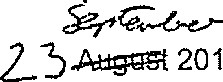 September
23 August 201